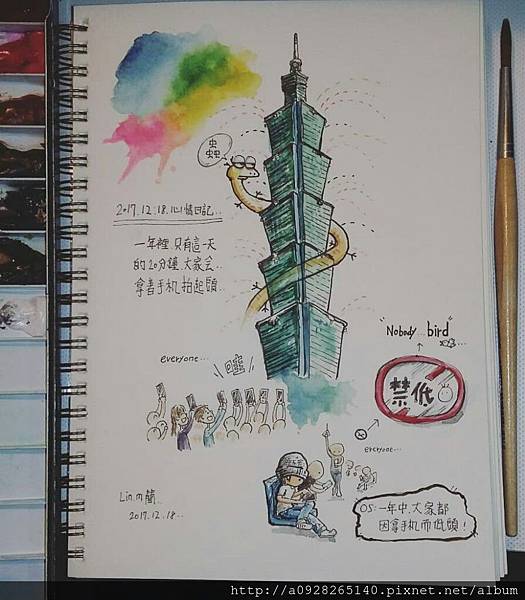 蟲
2017.12.18.心情日記..
一年裡.只有這一天
的20分鐘.大家会..
拿著手机.抬起頭..
"Nobody...bird"
everyone...
禁低
everyone...
Lin.m簡.
2017.12.18...
OS:一年中.大家都
因拿手机而低頭!
http://a0928265140.pixnet.net/album